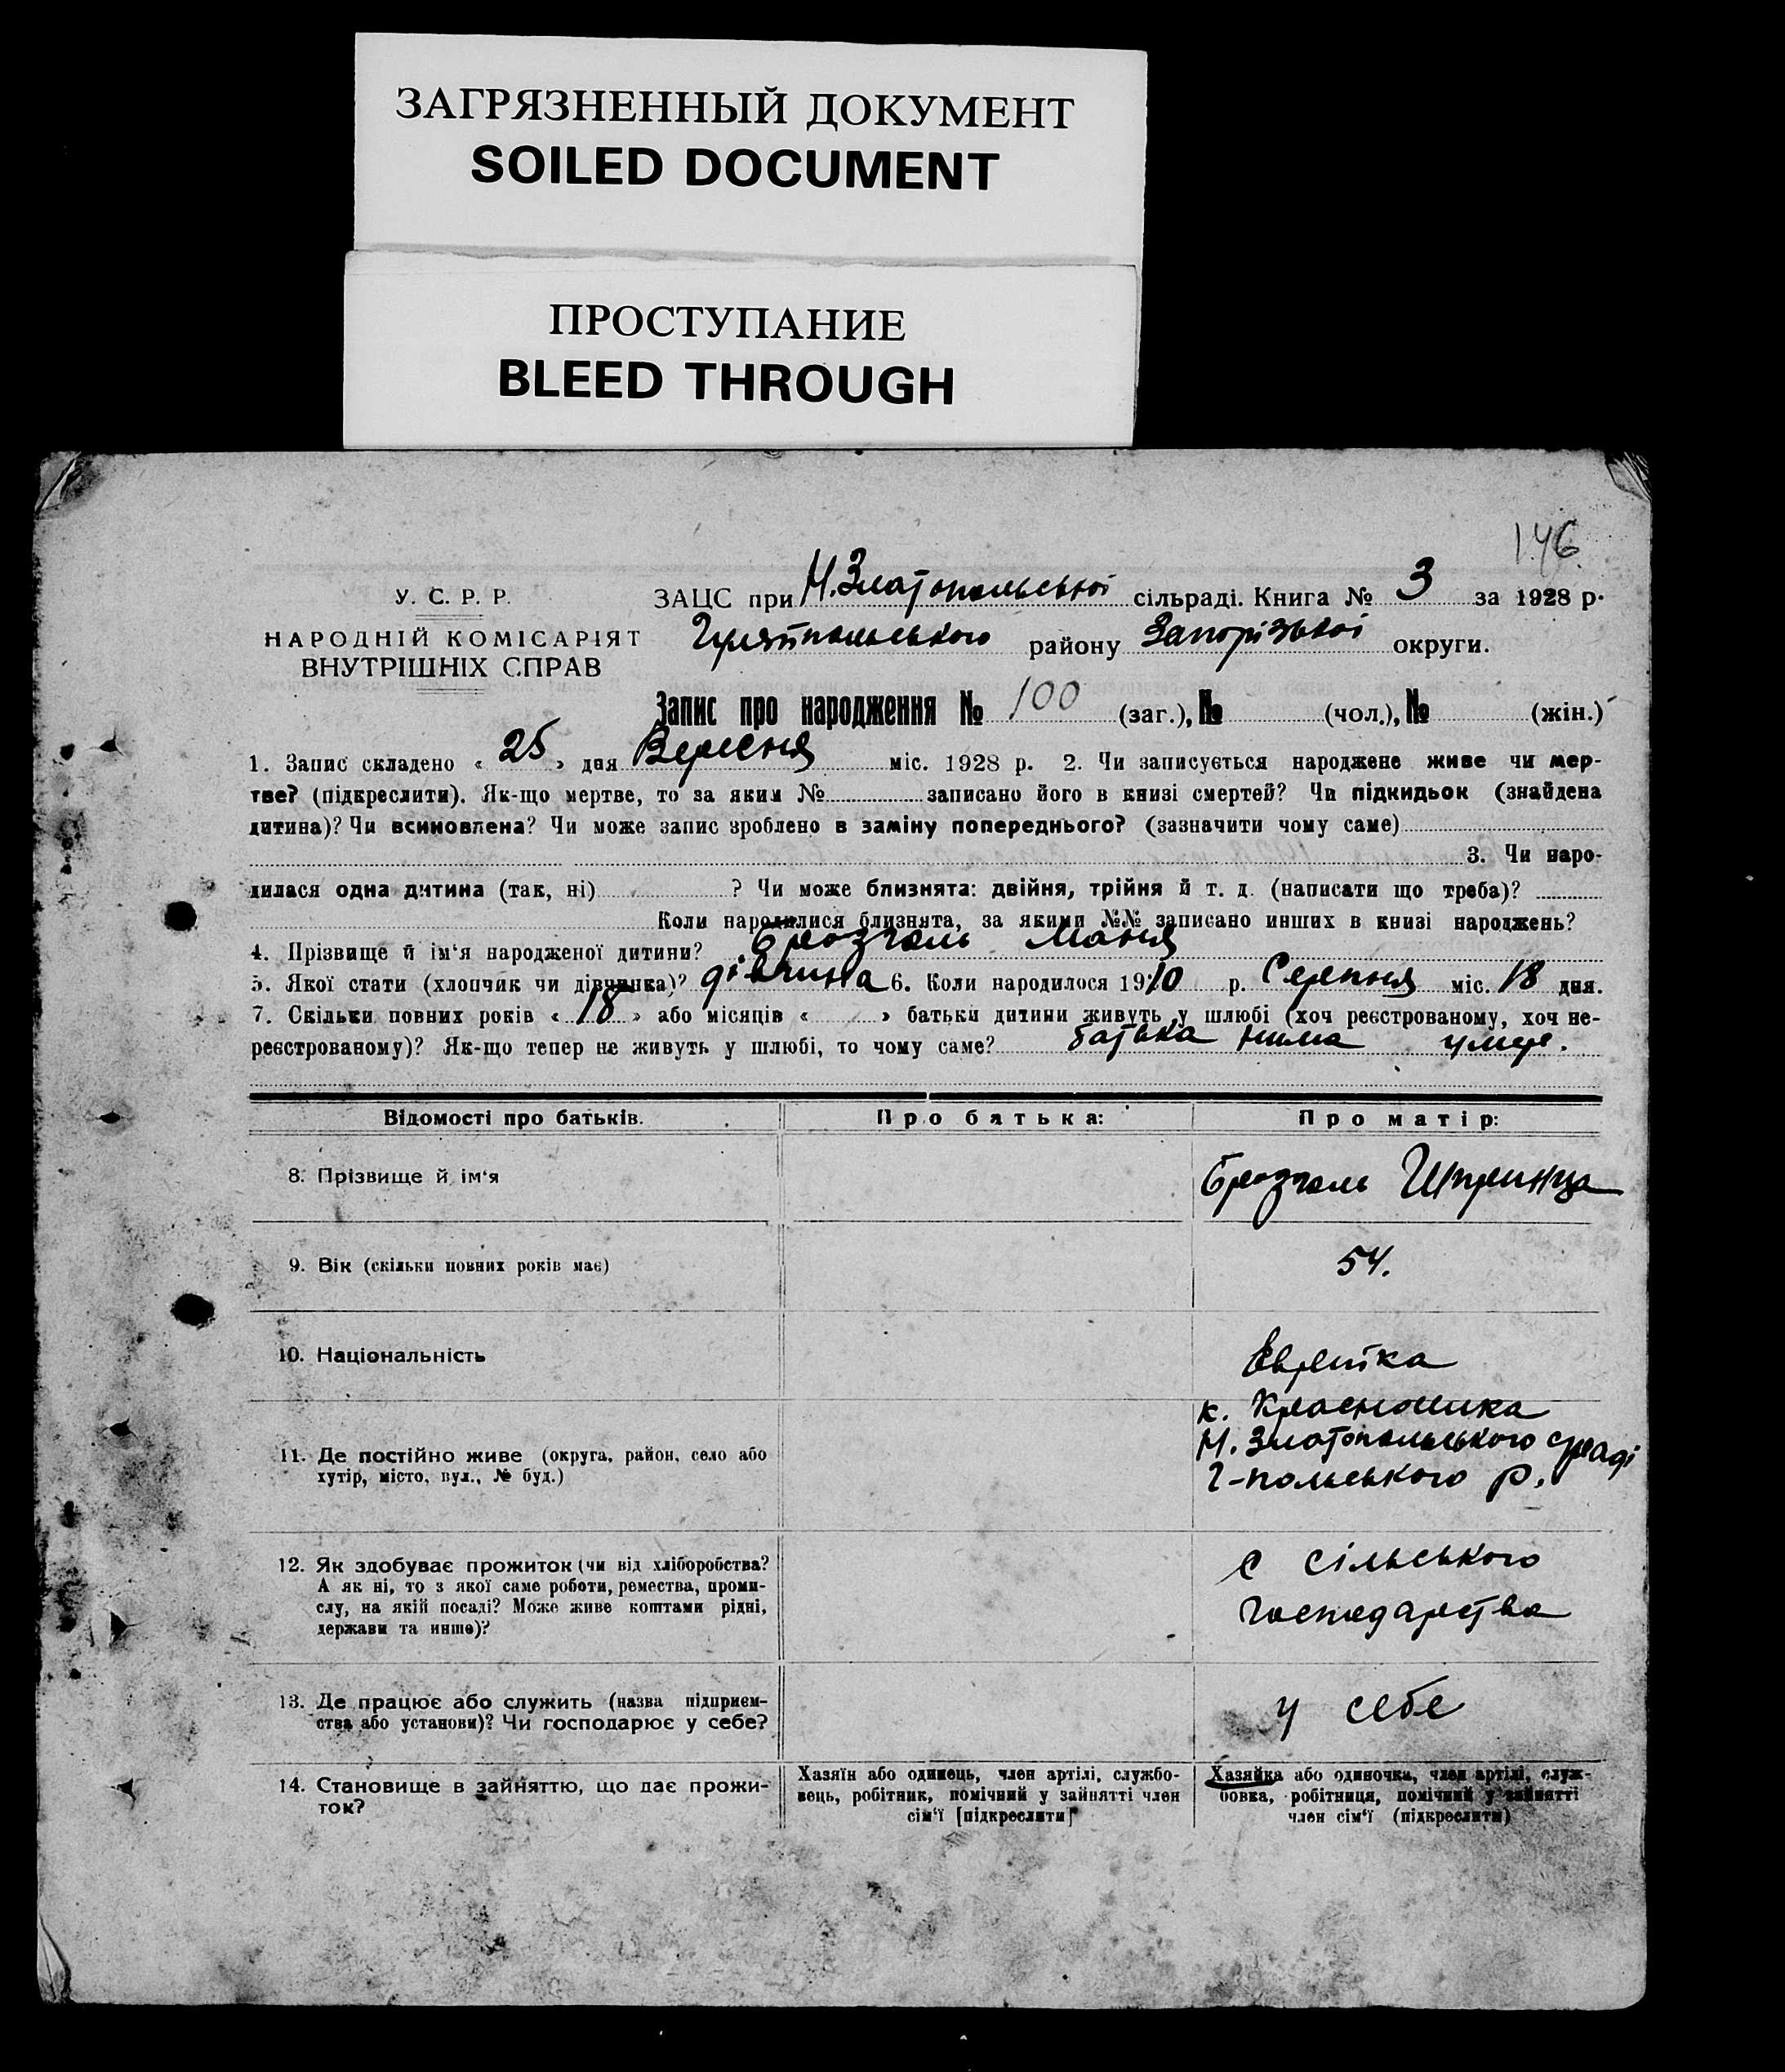 ЗАГРЯЗНЕННЫЙ ДОКУМЕНТ
SOILED DOCUMENT
ПРОСТУПАНИЕ
BLEED THROUGH
146
У. С. Р. Р.
НАРОДНІЙ КОМІСАРІЯТ
ВНУТРІШНІХ СПРАВ
ЗАЦС при Н.Златопольської сільраді. Книга № 3 за 1928 р.
Гуляйпольського району Запорізької округи.
Запис про народження № 100 (заг.), № (чол.), № (жін.)
1. Запис складено « 25 » дня Вересня міс. 1928 р. 2. Чи записується народжене живе чи мер-
тве? (підкреслити). Як-що мертве, то за яким № записано його в книзі смертей? Чи підкидьок (знайдена
дитина)? Чи всиновлена? Чи може запис зроблено в заміну попереднього? (зазначити чому саме)
3. Чи наро-
дилася одна дитина (так, ні) ? Чи може близнята: двійня, трійня й т. д. (написати що треба)?
Коли народилися близнята, за якими №№ записано инших в книзі народжень?
4. Прізвище й ім‘я народженої дитини? Маня
5. Якої стати (хлопчик чи дівчинка)? дівчина 6. Коли народилося 1910 р. Серпня міс. 18 дня.
7. Скільки повних років « 18 » або місяців « » батьки дитини живуть у шлюбі (хоч реєстрованому, хоч не-
реєстрованому)? Як-що тепер не живуть у шлюбі, то чому саме? батька нима умер.
Відомості про батьків. Про батька: Про матір:
8. Прізвище й ім‘я Шпринца
9. Вік (скільки повних років має) 54.
10. Національність Еврейка
11. Де постійно живе (округа, район, село або
хутір, місто, вул., № буд.)
к. Красноселка
Н. Златопольського сраді
Г-польського р.
12. Як здобуває прожиток (чи від хліборобства?
А як ні, то з якої саме роботи, ремества, проми-
слу, на якій посаді? Може живе коштами рідні,
держави та инше)?
с сільського
господарства
13. Де працює або служить (назва підприєм-
ства або установи)? Чи господарює у себе?
у себе
14. Становище в зайняттю, що дає прожи-
ток?
Хазяїн або одинець, член артілі, службо-
вець, робітник, помічний у зайнятті член
сім‘ї [підкреслити]
Хазяйка або одиночка, член артілі, служ-
бовка, робітниця, помічний у зайнятті
член сім‘ї (підкреслити)